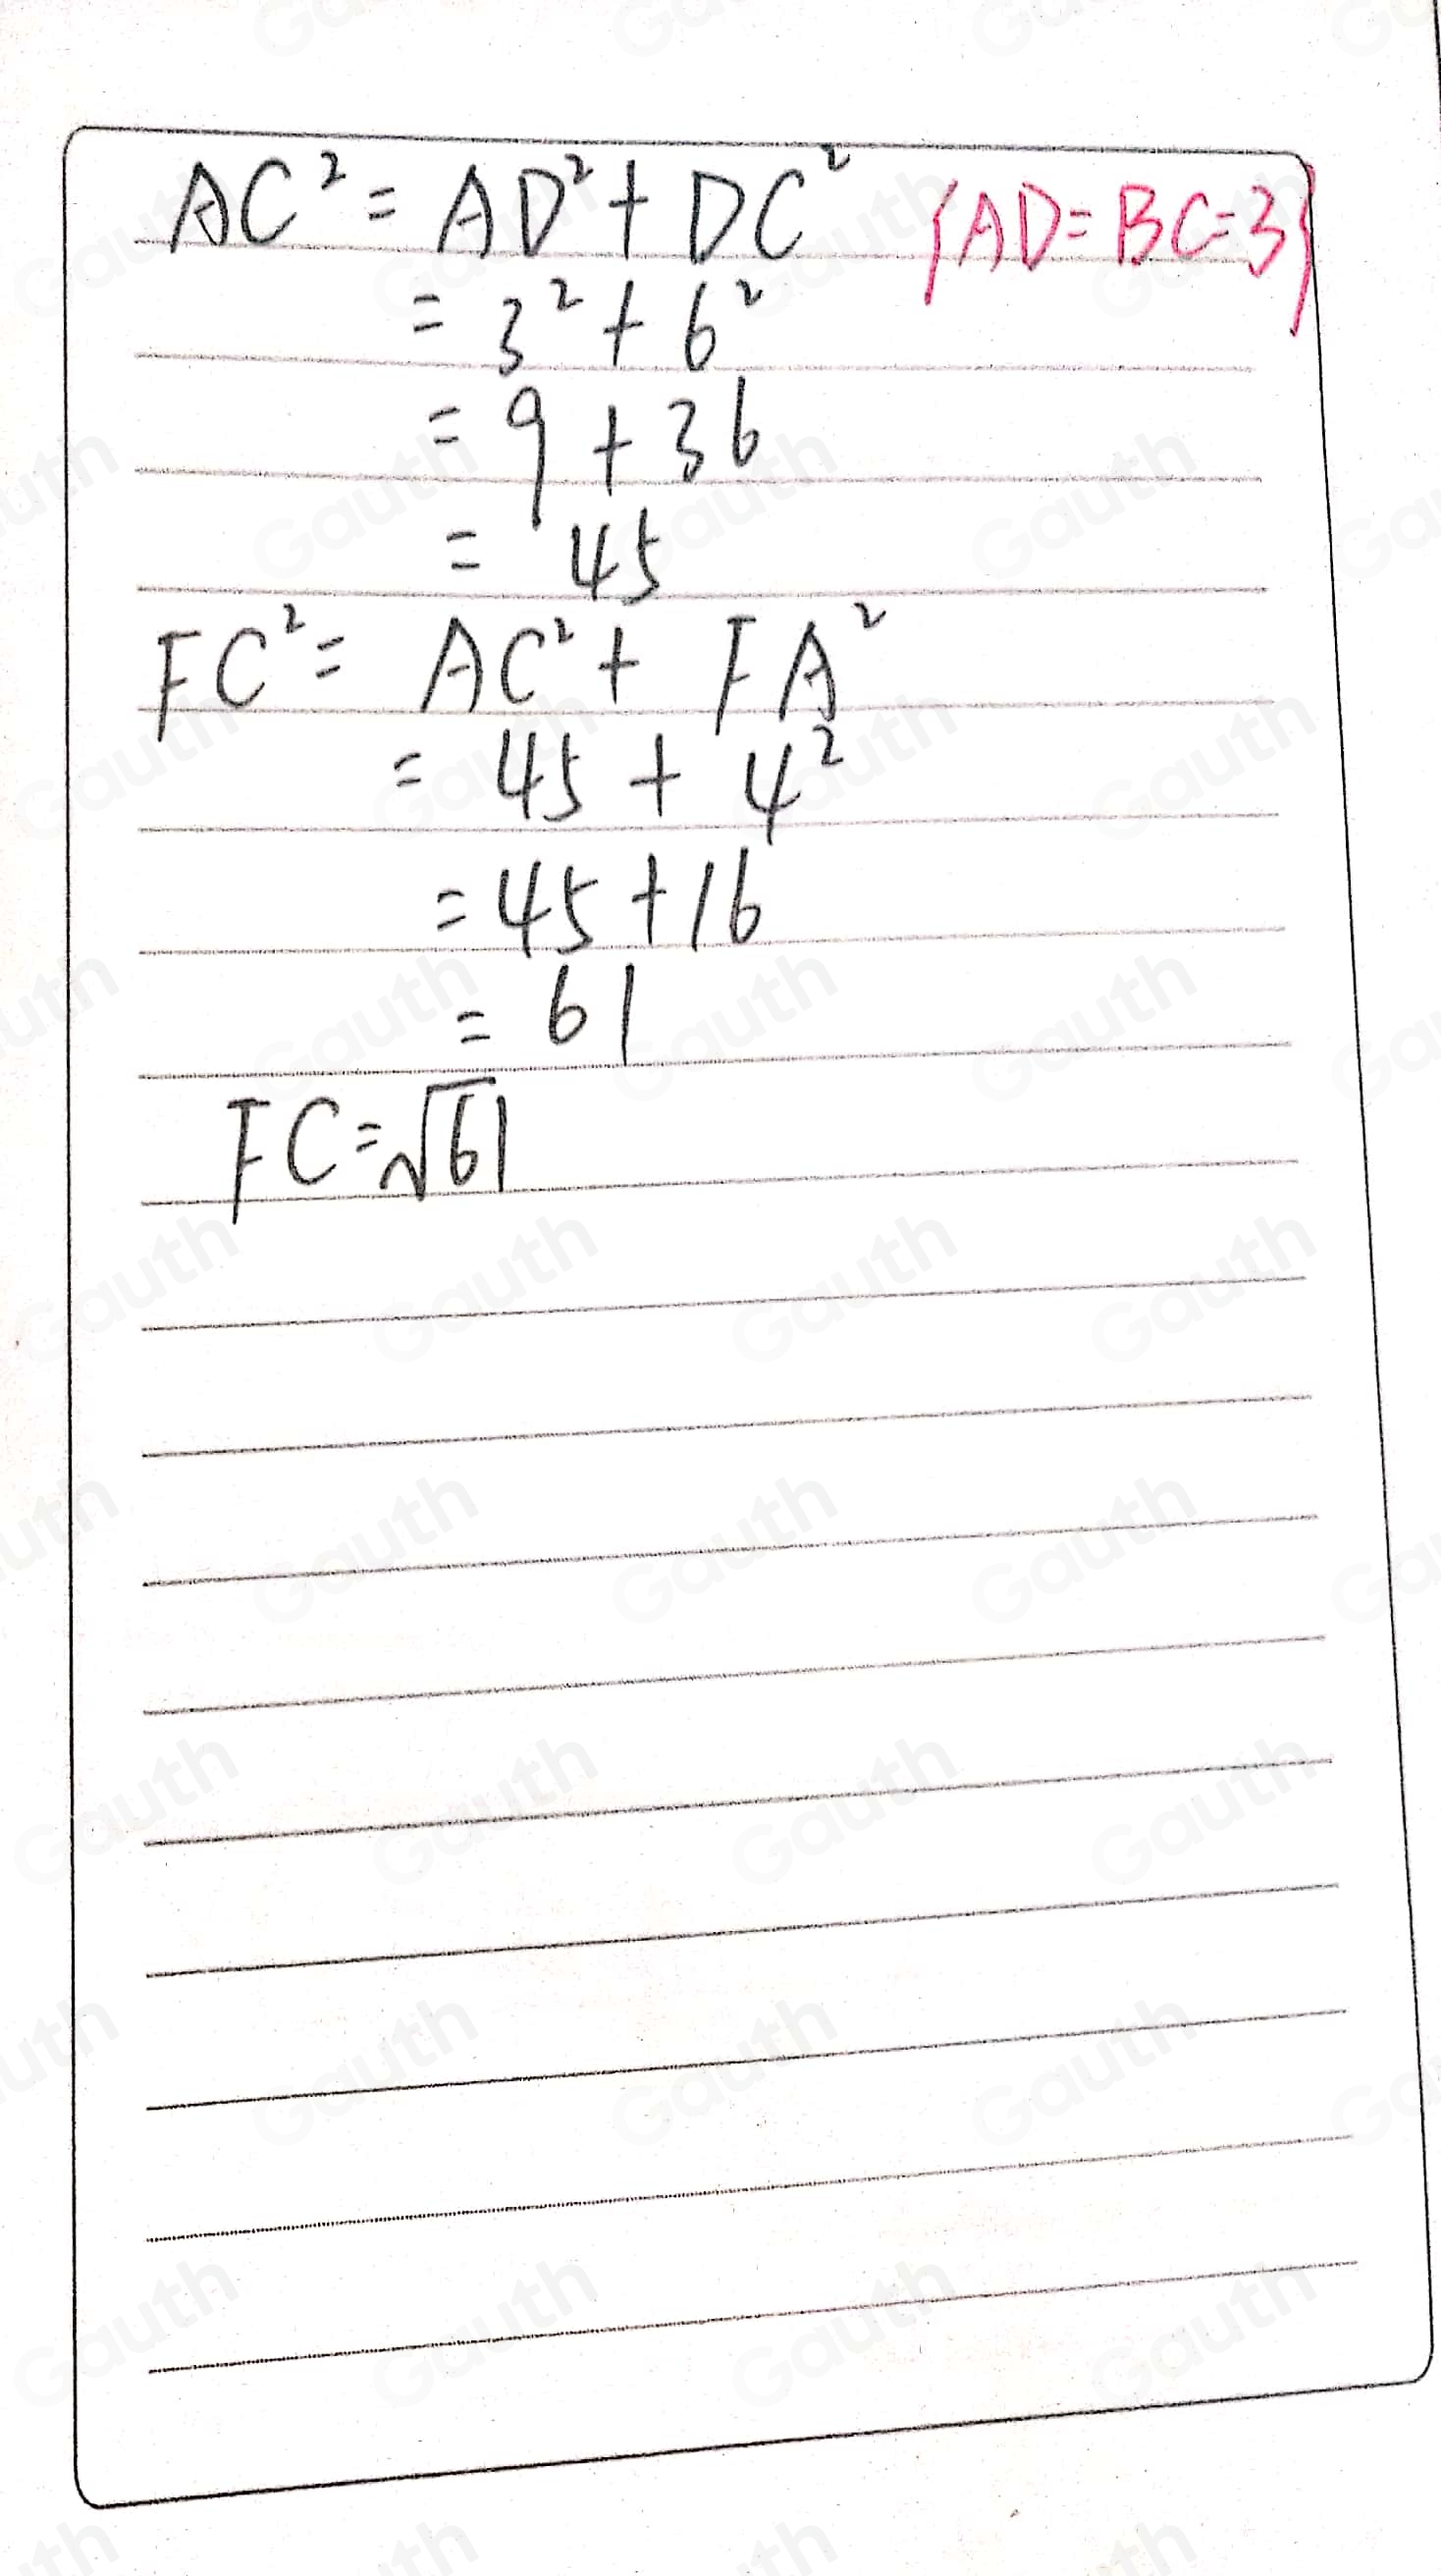 AC² = AD² + DC² {AD = BC = 3}
= 3² + 6²
= 9 + 36
= 45
FC² = AC² + FA²
= 45 + 4²
= 45 + 16
= 61
FC = √61
Gauth